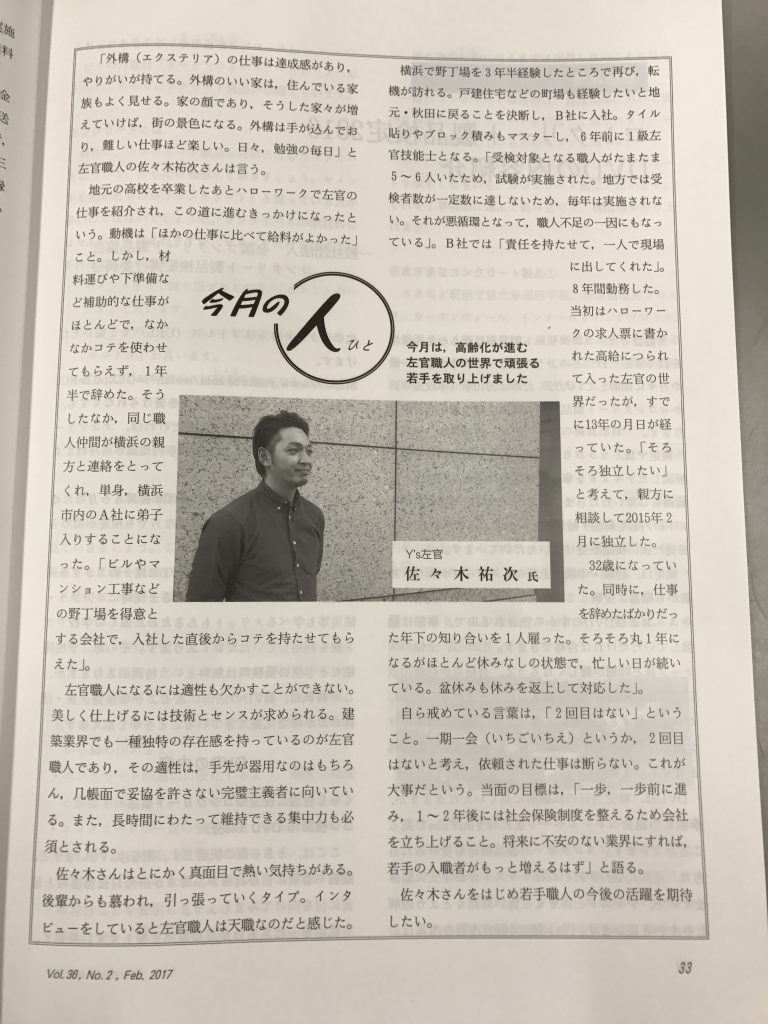 「外構（エクステリア）の仕事は達成感があり，
やりがいが持てる。外構のいい家は，住んでいる家
族もよく見せる。家の顔であり，そうした家々が増
えていけば，街の景色になる。外構は手が込んでお
り，難しい仕事ほど楽しい。日々，勉強の毎日」と
左官職人の佐々木祐次さんは言う。
地元の高校を卒業したあとハローワークで左官の
仕事を紹介され，この道に進むきっかけになったと
いう。動機は「ほかの仕事に比べて給料がよかった」
こと。しかし，材
料運びや下準備な
ど補助的な仕事が
ほとんどで，なか
なかコテを使わせ
てもらえず，１年
半で辞めた。そう
したなか，同じ職
人仲間が横浜の親
方と連絡をとって
くれ，単身，横浜
市内のＡ社に弟子
入りすることにな
った。「ビルやマ
ンション工事など
の野丁場を得意と
する会社で，入社した直後からコテを持たせてもら
えた」。
左官職人になるには適性も欠かすことができない。
美しく仕上げるには技術とセンスが求められる。建
築業界でも一種独特の存在感を持っているのが左官
職人であり，その適性は，手先が器用なのはもちろ
ん，几帳面で妥協を許さない完璧主義者に向いてい
る。また，長時間にわたって維持できる集中力も必
須とされる。
佐々木さんはとにかく真面目で熱い気持ちがある。
後輩からも慕われ，引っ張っていくタイプ。インタ
ビューをしていると左官職人は天職なのだと感じた。
今月の
人
ひと
今月は，高齢化が進む
左官職人の世界で頑張る
若手を取り上げました
Y's左官
佐々木祐次 氏
横浜で野丁場を３年半経験したところで再び，転
機が訪れる。戸建住宅などの町場も経験したいと地
元・秋田に戻ることを決断し，Ｂ社に入社。タイル
貼りやブロック積みもマスターし，６年前に１級左
官技能士となる。「受検対象となる職人がたまたま
５～６人いたため，試験が実施された。地方では受
検者数が一定数に達しないため，毎年は実施されな
い。それが悪循環となって，職人不足の一因にもなっ
ている」。Ｂ社では「責任を持たせて，一人で現場
に出してくれた」。
８年間勤務した。
当初はハローワー
クの求人票に書か
れた高給につられ
て入った左官の世
界だったが，すで
に13年の月日が経
っていた。「そろ
そろ独立したい」
と考えて，親方に
相談して2015年２
月に独立した。
32歳になってい
た。同時に，仕事
を辞めたばかりだっ
た年下の知り合いを１人雇った。そろそろ丸１年に
なるがほとんど休みなしの状態で，忙しい日が続い
ている。盆休みも休みを返上して対応した」。
自ら戒めている言葉は，「２回目はない」という
こと。一期一会（いちごいちえ）というか，２回目
はないと考え，依頼された仕事は断らない。これが
大事だという。当面の目標は，「一歩，一歩前に進
み，１～２年後には社会保険制度を整えるため会社
を立ち上げること。将来に不安のない業界にすれば，
若手の入職者がもっと増えるはず」と語る。
佐々木さんをはじめ若手職人の今後の活躍を期待
したい。
Vol. 36, No. 2, Feb. 2017
33